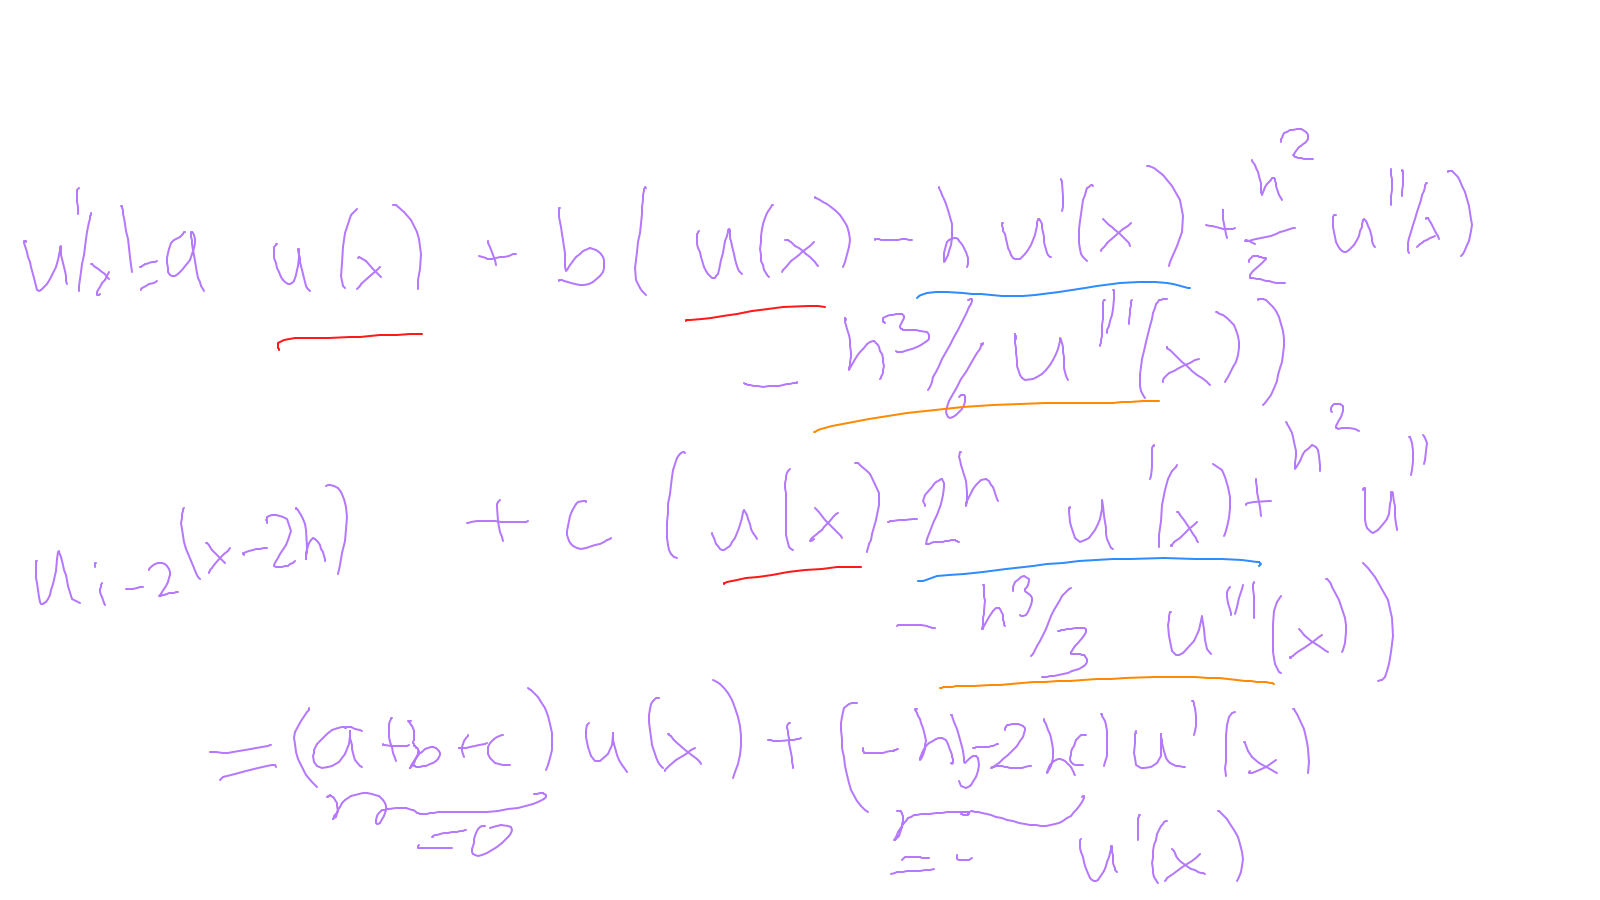 u'(x) = a u(x) + b( u(x) - h u'(x) + h²/2 u''(x)
- h³/6 u'''(x))
u_{i-2}(x-2h) + c (u(x) - 2h u'(x) + h² u''
- h³/3 u'''(x))
= (a+b+c) u(x) + (-hb-2hc) u'(x)
=0 =- u'(x)